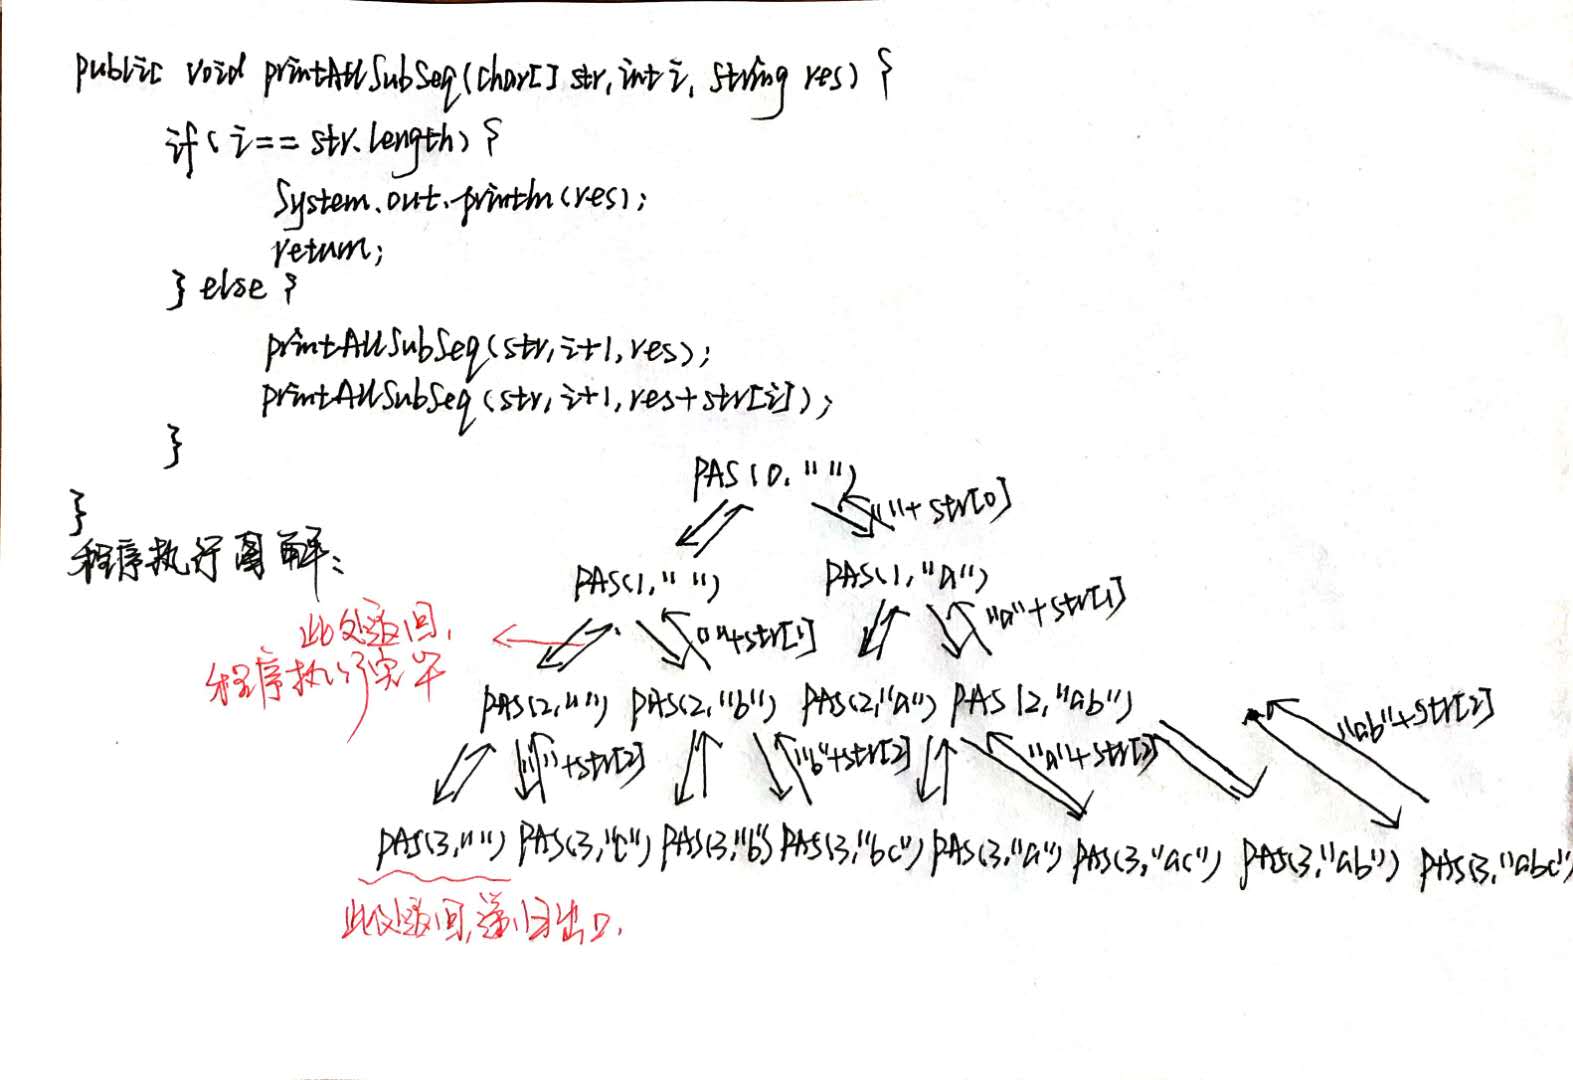 public void printAllSubSeq(char[] str, int i, string res) {
if( i== str.length) {
System.out.println(res);
return;
} else {
printAllSubSeq(str, i+1, res);
printAllSubSeq(str, i+1, res+str[i]);
}
PAS(0, "")
}
""+ str[0]
程序执行图解:
PAS(1, "")
PAS(1, "a")
此处返回,
""+str[1]
"a"+str[1]
程序执行完毕
PAS(2,"") PAS(2,"b") PAS(2,"a") PAS(2,"ab")
""+str[2] "b"+str[2] "a"+str[2] "ab"+str[2]
PAS(3,"") PAS(3,"c") PAS(3,"b") PAS(3,"bc") PAS(3,"a") PAS(3,"ac") PAS(3,"ab") PAS(3,"abc")
此处返回,递归出口.